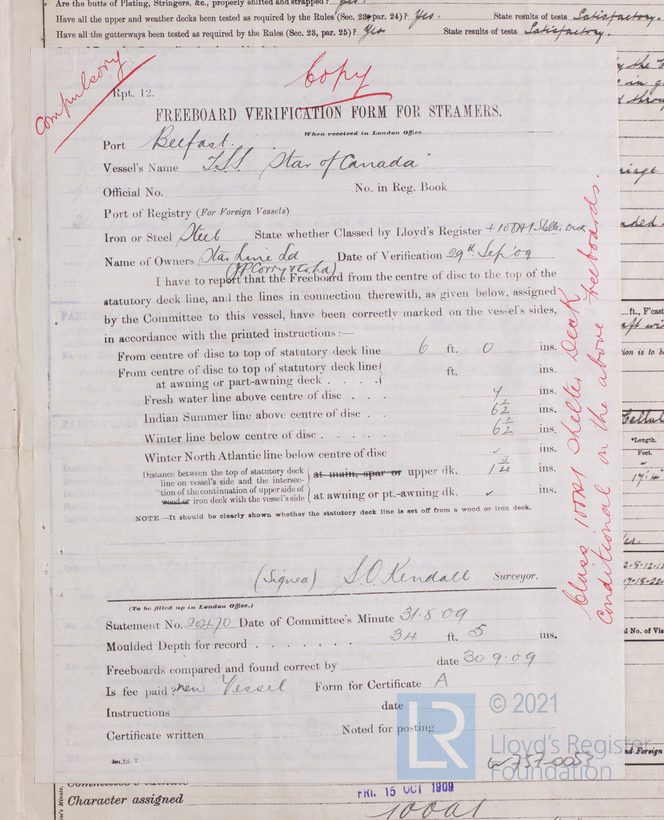 Are the butts of Plating, Stringers, &c., properly shifted and strapped? Yes.
Have all the upper and weather decks been tested as required by the Rules (Sec. 23, par. 24)? Yes. State results of tests Satisfactory.
Have all the gutterways been tested as required by the Rules (Sec. 23, par. 25)? Yes State results of tests Satisfactory.
Compulsory
Copy
Rpt. 12.
FREEBOARD VERIFICATION FORM FOR STEAMERS.
When received in London Office.
Port Belfast.
Vessel's Name T.S.S. "Star of Canada"
Official No. No. in Reg. Book
Port of Registry (For Foreign Vessels)
Iron or Steel Steel State whether Classed by Lloyd's Register +100A1 Shelter Deck
Name of Owners Star Line Ld Date of Verification 29th Sep '09
(J P Corry & Co Ld)
I have to report that the Freeboard from the centre of disc to the top of the
statutory deck line, and the lines in connection therewith, as given below, assigned
by the Committee to this vessel, have been correctly marked on the vessel's sides,
in accordance with the printed instructions:—
From centre of disc to top of statutory deck line 6 ft. 0 ins.
From centre of disc to top of statutory deck line
at awning or part-awning deck . . . . ft. ins.
Fresh water line above centre of disc . . . ins.
Indian Summer line above centre of disc . 6½ ins.
Winter line below centre of disc . . . . 6½ ins.
Winter North Atlantic line below centre of disc ✓ ins.
Distance between the top of statutory deck
line on vessel's side and the intersec-
tion of the continuation of upper side of
wood or iron deck with the vessel's side
at main, spar or upper dk. 1¾ ins.
at awning or pt.-awning dk. ✓ ins.
NOTE.—It should be clearly shown whether the statutory deck line is set off from a wood or iron deck.
(Signed) S.O. Kendall Surveyor.
(To be filled up in London Office.)
Statement No. 20470 Date of Committee's Minute 31.8.09
Moulded Depth for record . . . . . . . 34 ft. 5 ins.
Freeboards compared and found correct by date 30.9.09
Is fee paid? new Vessel Form for Certificate A
Instructions date
Certificate written Noted for posting
Class 100A1 Shelter Deck
conditional on the above freeboards.
LR
© 2021
Lloyd's Register
Foundation
W757-0053
Character assigned
FRI. 15 OCT 1909
100A1
*Length.
Feet.